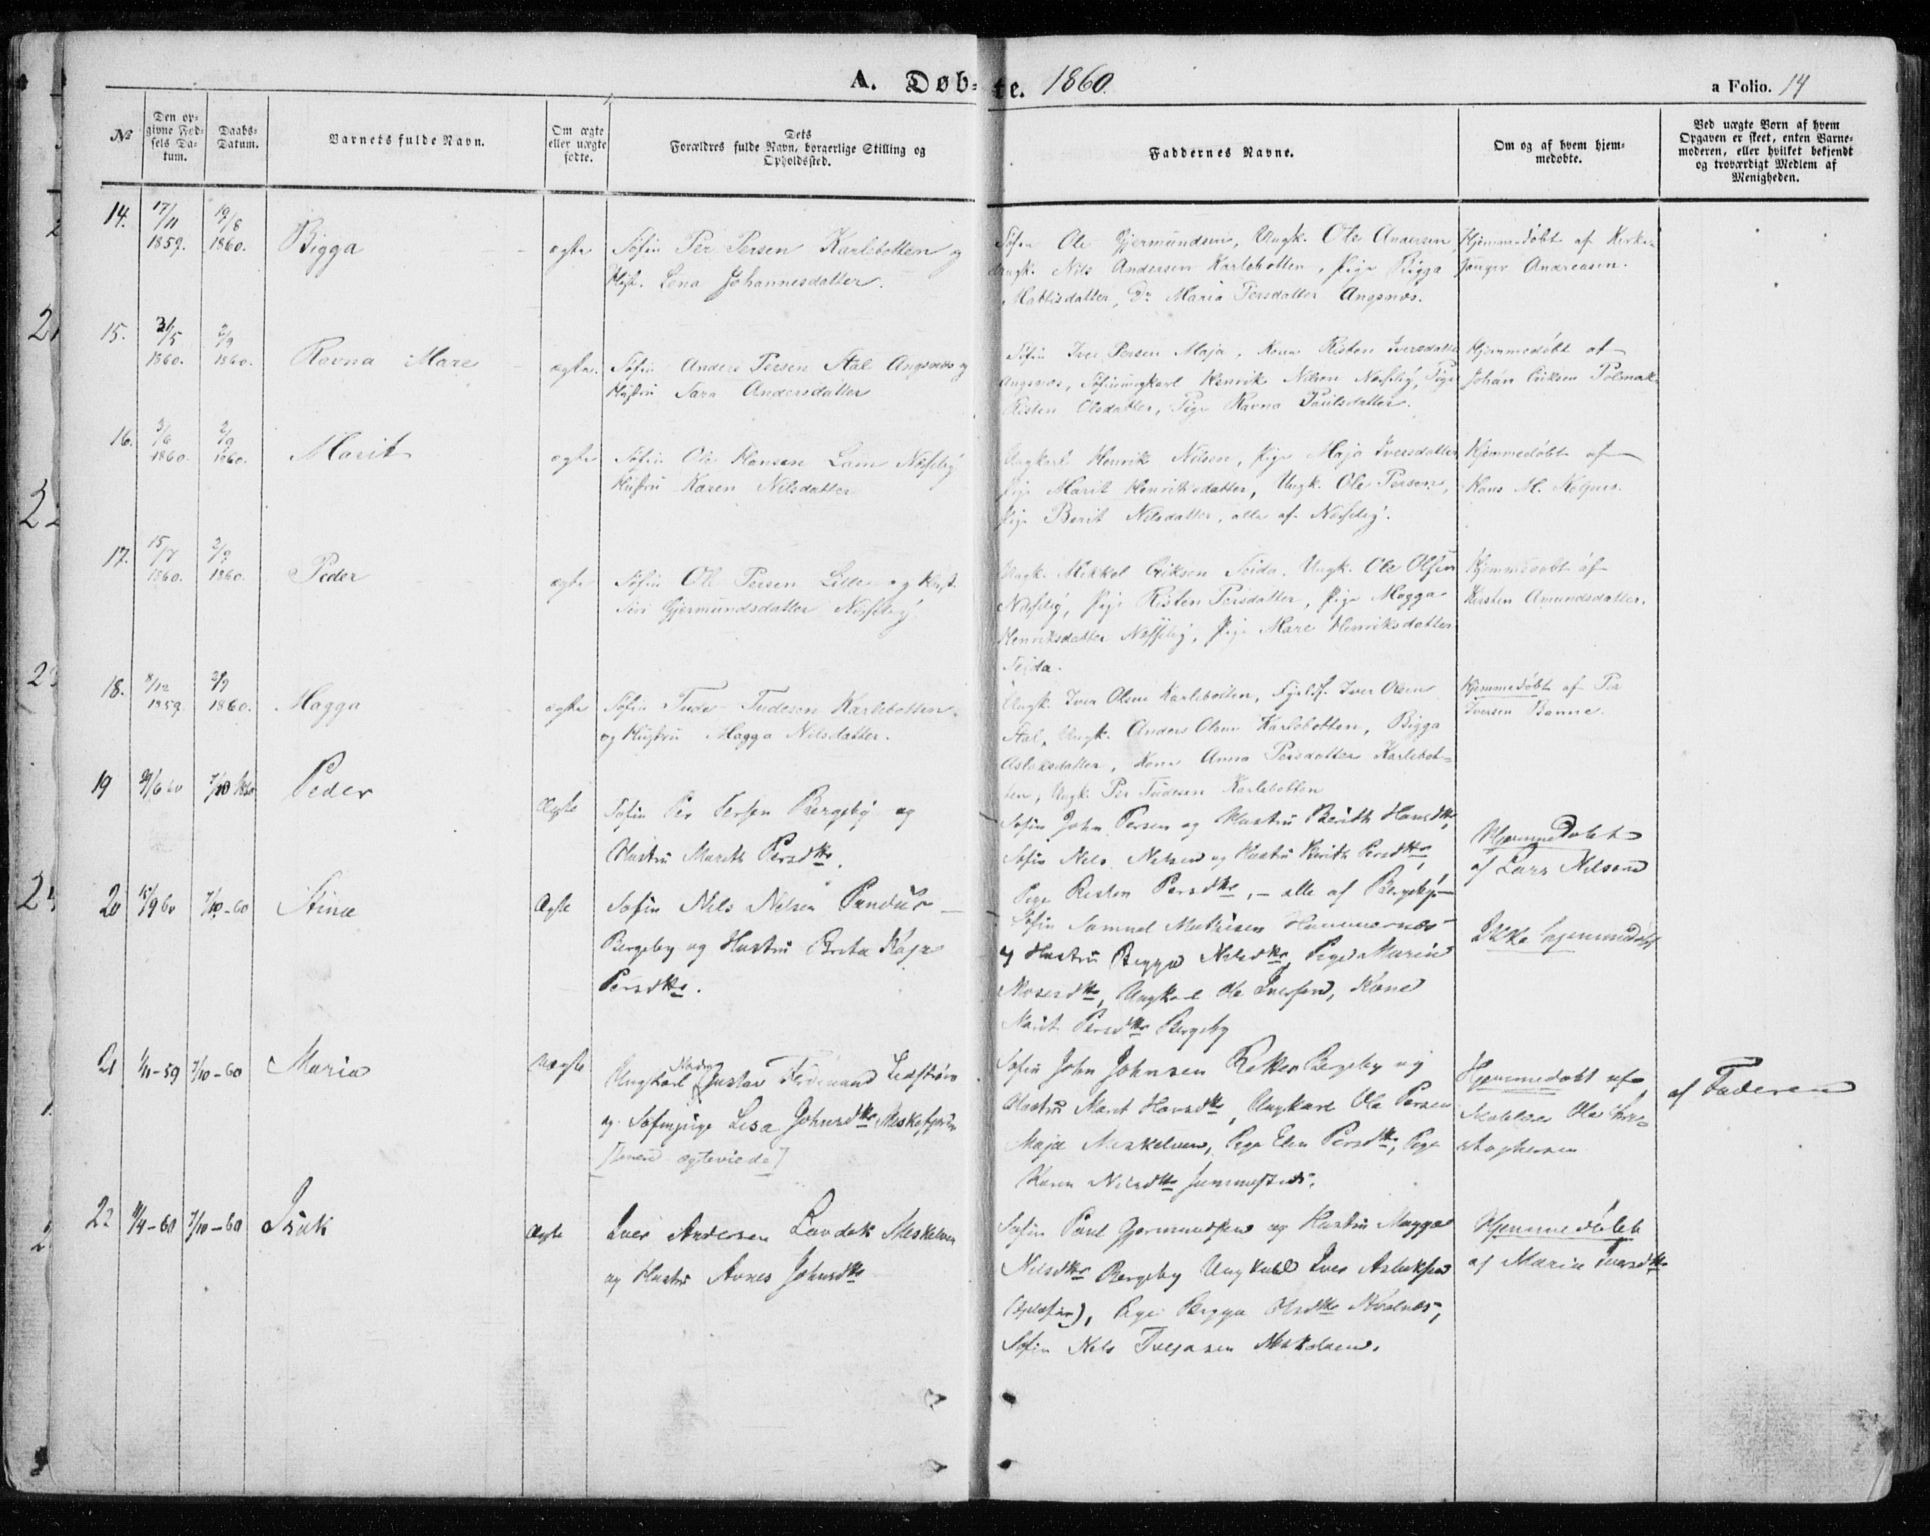 A. Døbte. 1860. a Folio. 14
No
Den opgivne Fødsels Datum.
Daabs-Datum.
Barnets fulde Navn.
Om ægte eller uægte fødte.
Dets Forældres fulde Navn, borgerlige Stilling og Opholdssted.
Faddernes Navne.
Om og af hvem hjemmedøbte.
Ved uægte Børn af hvem Opgaven er skeet, enten Barnemoderen, eller hvilket bekjendt og troværdigt Medlem af Menigheden.
14. 17/11 1859. 19/8 1860. Bigga ægte
Søfin Per Persen Karlebotten og
Hust. Lena Johannesdatter.
Søfin Ole Gjermundsen, Ungk. Ole Andersen,
Ungk. Nils Andersen Karlebotten, Pige Bigga
Mattisdatter, Do Maria Persdatter Angsnæs.
Hjemmedøbt af Kirke-
sanger Andreasen.
15. 31/5 1860. 2/9 1860. Ravna Mare ægte.
Søfin Anders Persen Stal Angsnæs og
Hustru Sara Andersdatter
Søfin Iver Persen Maja, Kone Risten Iversdatter
Angsnæs, Søfinungkarl Henrik Nilsen Næsseby, Pige
Risten Olsdatter, Pige Ravna Paulsdatter.
Hjemmedøbt af
Johan Eriksen Polmak
16. 3/6 1860. 2/9 1860. Marit ægte
Søfin Ole Hansen Næsseby
Hustru Karen Nilsdatter
Ungkarl Henrik Nilsen, Pige Maja Iversdatter
Pige Marit Henriksdatter, Ungk. Ole Persen,
Pige Berit Nilsdatter, alle af Næsseby.
Hjemmedøbt af
Hans M.
17. 15/7 1860. 2/9 1860. Peder ægte
Søfin Ole Persen Lille og Hust.
Siri Gjermundsdatter Næsseby.
Ungk. Mikkel Eriksen Seida, Ungk. Ole Olsen
Næsseby, Pige Risten Persdatter, Pige Magga
Henriksdatter Næsseby, Pige Mare Henriksdatter
Seida.
Hjemmedøbt af
Kirsten Amundsdatter.
18. 8/12 1859. 2/9 1860. Magga ægte
Søfin Tude Tudesen Karlebotten
og Hustru Magga Nilsdatter.
Ungk. Iver Olsen Karlebotten, Fjeldf. Iver Olsen
Stal, Ungk. Anders Olsen Karlebotten, Bigga
Aslaksdatter, Kone Anna Persdatter Karlebot-
ten, Ungk. Per Tudesen Karlebotten
Hjemmedøbt af Per
Iversen Banne.
19 7/10 1860 Peder Ægte
Søfin Per Persen Bergeby og
Hustru Marith Persdtr.
Søfin John Persen og Hustru Berith Hansdtr,
Søfin Nils Nilsen og Hustru Persdtr,
Pige Risten Persdtr, – alle af Bergeby
Hjemmedøbt
af Lars Nilsen
20 15/9 60 7/10-60 Stina Ægte
Søfin Nils Nilsen Pandur
Bergeby og Hustru Brita Kaja
Persdtr.
Søfin Samuel Mathisen Hammernæs
og Hustru Bigga Nilsdtr, Pige Maria
Mosesdtr, Ungkarl Ole Iversen, Kone
Marit Persdtr Bergeby
Ikke hjemmedøbt
21 1/11-59 7/10-60 Maria Uægte
Ungkarl Gustav Ferdinand
og Søfinpige Lisa Johnsdtr Meskefjorden
[senere ægteviede]
Søfin John Johnsen Bergeby og
Hustru Marit Hansdtr, Ungkarl Ole Persen
Maja Meskelven, Pige Elen Persdtr, Pige
Karen Nilsdtr
Hjemmedøbt af
Ole
af Faderen
22 11/4-60 7/10-60 Isak Ægte
Iver Andersen Meskelven
og Hustru Johnsdtr
Søfin Paul Gjermundsen og Hustru Magga
Nilsdtr Bergeby Ungkarl Iver Aslaksen
Pige Bigga Olsdtr
Søfin Nils Meskelven.
Hjemmedøbt
af Maria Iversdtr